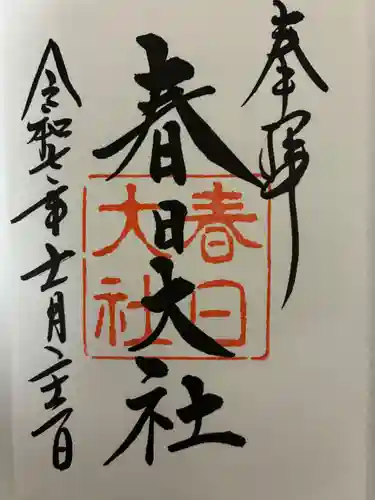 奉拝
春日大社
春日大社
令和七年十一月二十三日